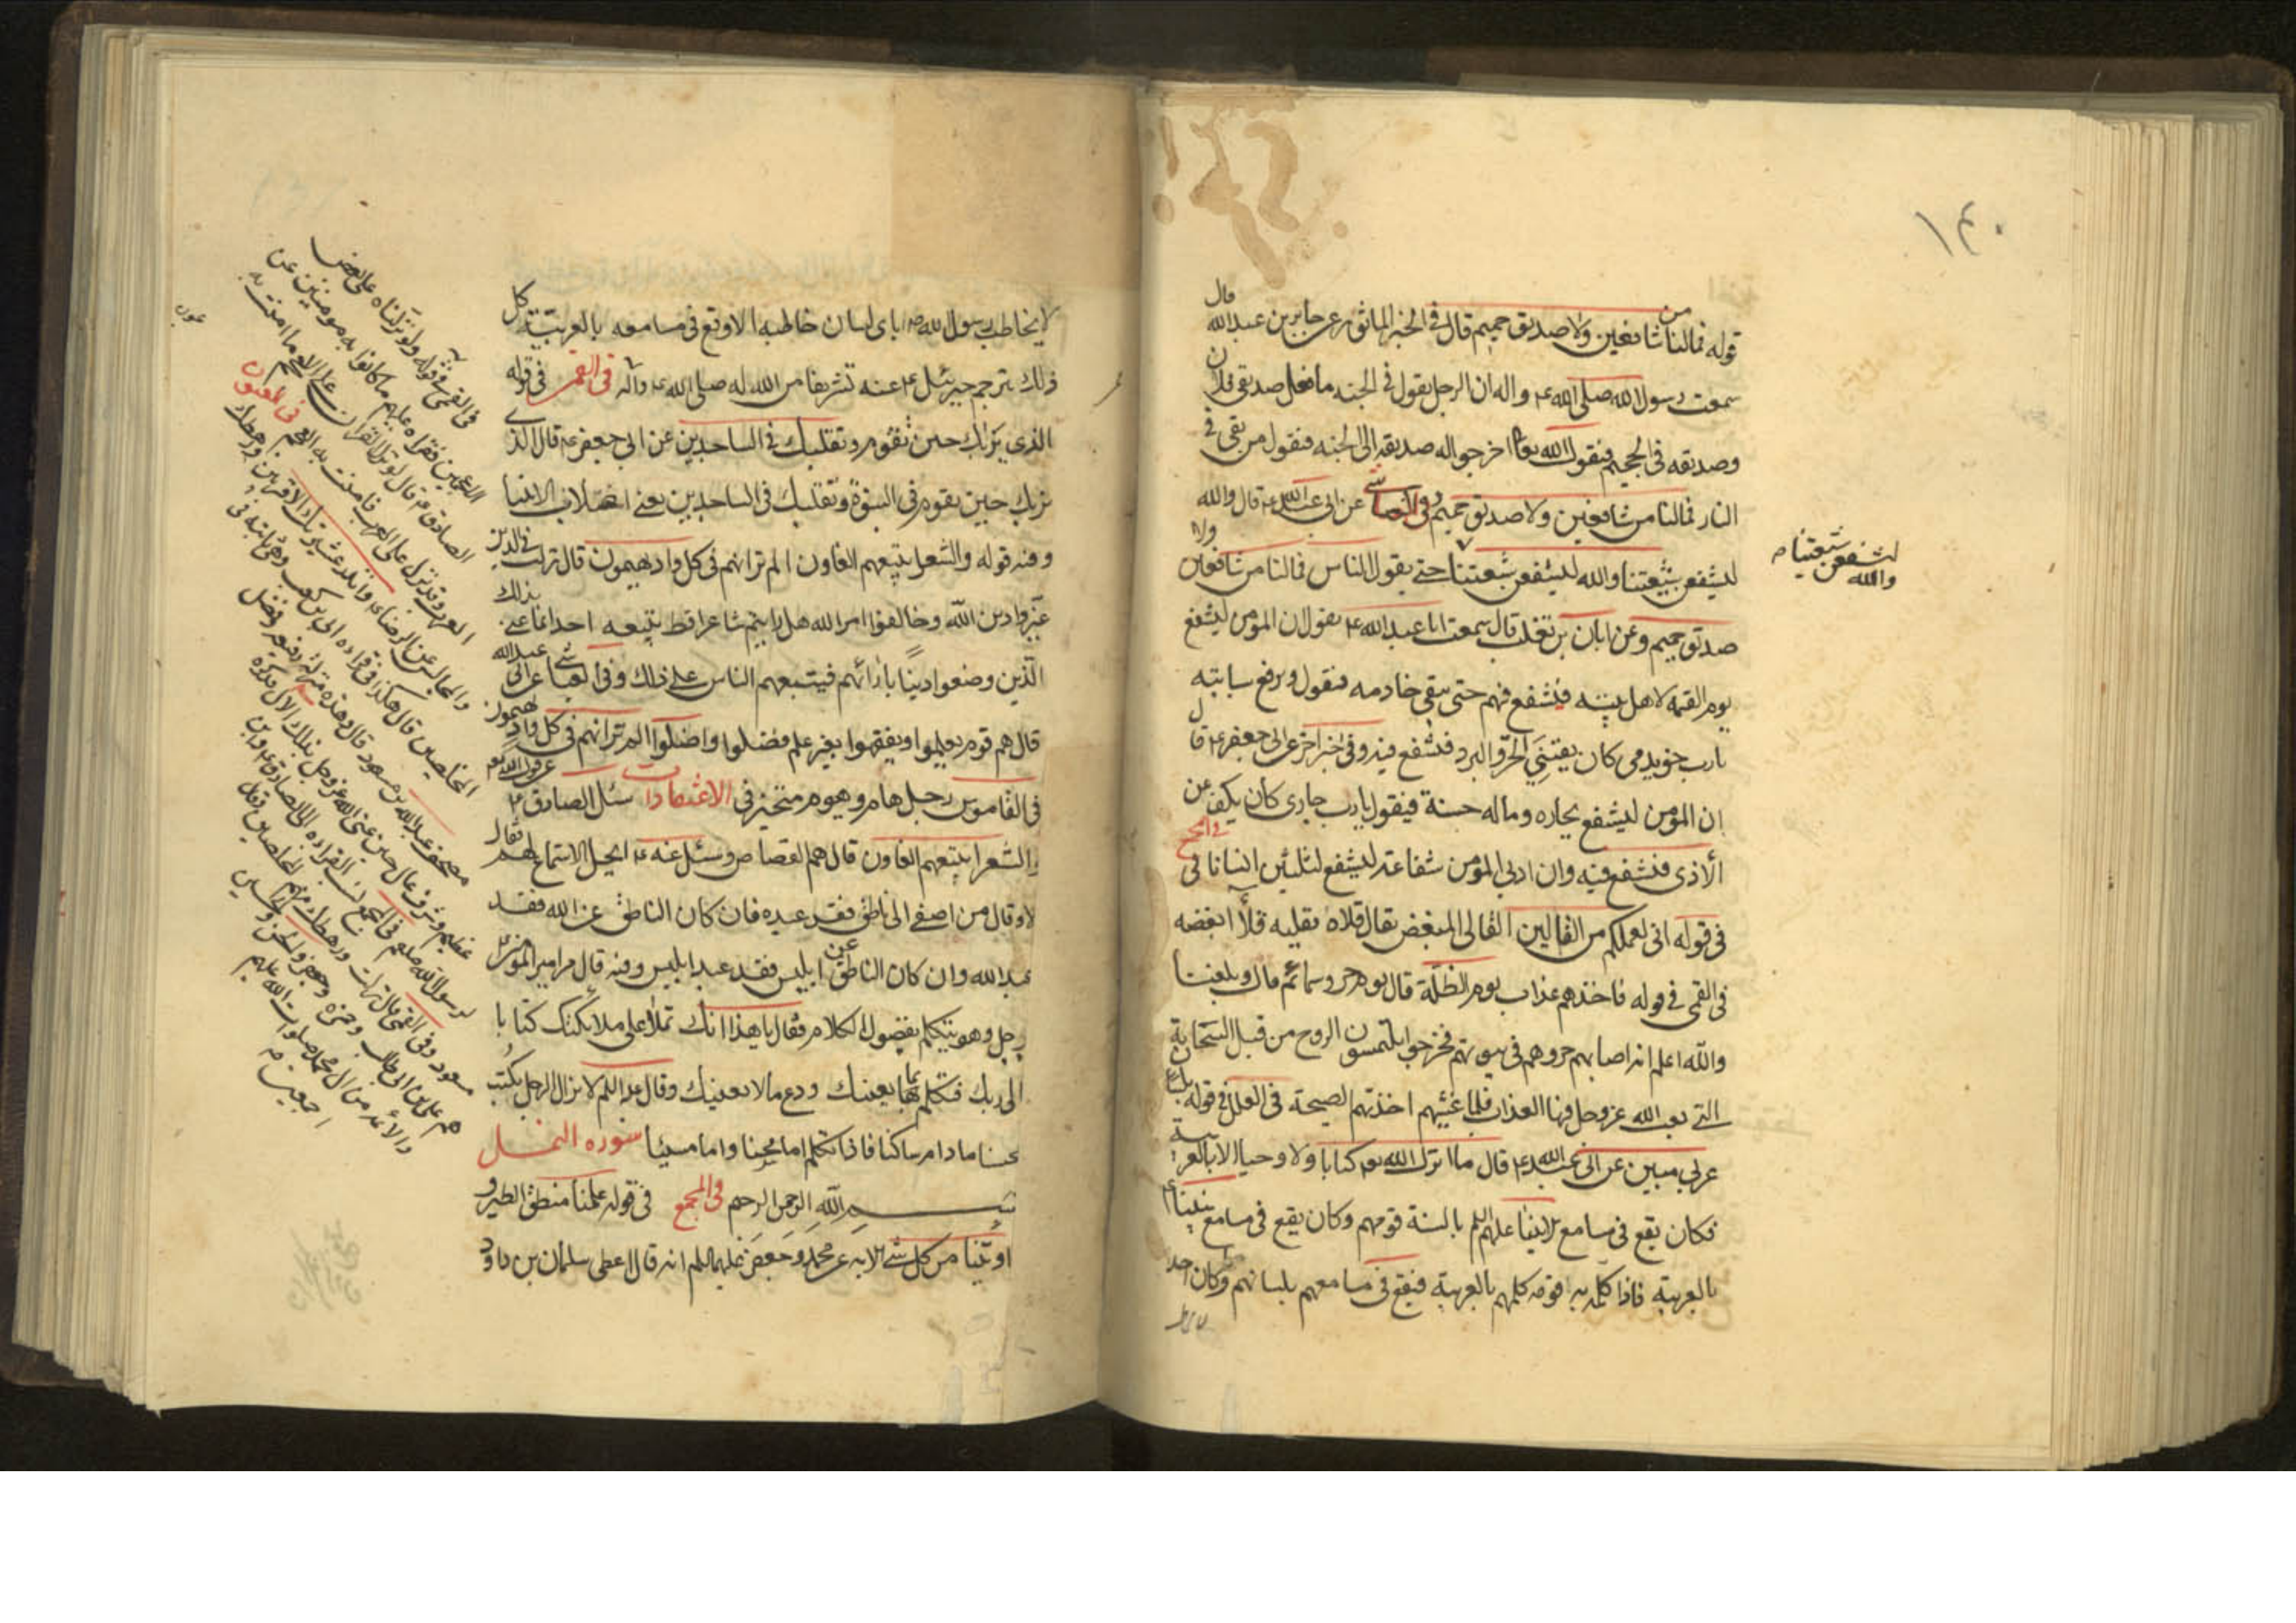 ١٤٠
قوله فمالنا من شافعين ولا صديق حميم قال فى الخبر الماثور عن جابر بن عبد الله قال
سمعت رسول الله صلى الله ع واله ان الرجل يقول فى الجنه ما فعل صديقى فلان
وصديقه فى الجحيم فيقول الله تعا اخرجوا له صديقه الى الجنه فيقول من بقى فى
النار فمالنا من شافعين ولا صديق حميم وفى العياشى عن ابى عبد الله ع قال والله
لنشفعن شيعتنا والله لنشفعن شيعتنا حتى يقول الناس فمالنا من شافعين ولا
لنشفعن شيعتنا م
والله
صديق حميم وعن ابان بن تغلب قال سمعت ابا عبد الله ع يقول ان المؤمن ليشفع
يوم القيمه لاهل بيته فيشفع فيهم حتى يبقى خادمه فيقول ويرفع سبابتيه
يارب خويدمى كان يقينى الحر والبرد فيشفع فيه وفى خبر اخر عن ابى جعفر ع قال
ان المؤمن ليشفع لجاره وماله حسنة فيقول يارب جارى كان يكف عن
الاذى فيشفع فيه وان ادنى المؤمن شفاعة ليشفع لثلثين انسانا فى المجمع
فى قوله انى لعملكم من القالين القالى المبغض يقال قلاه يقليه قلاً ابغضه
فى القمى فى قوله فاخذهم عذاب يوم الظلة قال يوم حر وسمائم قال وبلغنا
والله اعلم انه اصابهم حر وهم فى بيوتهم فخرجوا يلتمسون الروح من قبل السحابة
التى بعث الله عز وجل فيها العذاب فلما غشيهم اخذتهم الصيحة فى العلل فى قوله بلسان
عربى مبين عن ابى عبد الله ع قال ما انزل الله تع كتابا ولا وحيا الا بالعربية
فكان يقع فى مسامع الانبيا عليهم السلم بالسنة قومهم وكان يقع فى مسامع نبينا ع
بالعربية فاذا كلم به قومه كلمهم بالعربية فيقع فى مسامعهم بلسانهم وكان احد
لا يخاطب رسول الله ص باى لسان خاطبه الا وقع فى مسامعه بالعربية كل
ذلك يترجم جبرئيل ع عنه تشريفا من الله له صلى الله ع واله فى القمى فى قوله
الذى يراك حين تقوم وتقلبك فى الساجدين عن ابى جعفر ع قال الذى
يراك حين تقوم فى النبوة وتقلبك فى الساجدين يعنى اصلاب الانبيا
وفيه قوله والشعرا يتبعهم الغاون الم تر انهم فى كل واد يهيمون قال نزلت فى الذين
غيروا دين الله وخالفوا امر الله هل رايتم شاعرا قط يتبعه احد انما عنى بذلك
الذين وضعوا دينا بارائهم فيتبعهم الناس على ذلك وفى العياشى عن ابى عبد الله
قال هم قوم تعلموا وتفقهوا بغير علم فضلوا واضلوا الم تر انهم فى كل واد يهيمون
فى القاموس رجل هام وهيوم متحير فى الاعتقادات سئل الصادق ع عن قول الله تع
والشعرا يتبعهم الغاون قال هم القصاص وسئل عنه ع ايحل الاستماع لهم فقال
لا وقال من اصغى الى ناطق فقد عبده فان كان الناطق عن الله فقد
عبد الله وان كان الناطق عن ابليس فقد عبد ابليس وفيه قال مر امير المؤمنين ع
برجل وهو يتكلم بفضول الكلام فقال يا هذا انك تملأ على ملائكتك كتابا
الى ربك فتكلم بما يعنيك ودع ما لا يعنيك وقال عليه السلم لا يزال الرجل يكتب
محسنا مادام ساكتا فاذا تكلم اما محسنا واما مسيئا سوره النمل
بسم الله الرحمن الرحيم فى المجمع فى قوله علمنا منطق الطير و
اوتينا من كل شئ الايه عن محمد وجعفر عليهما السلم انه قال اعطى سليمان بن داود
فى القمى فى قوله ولو نزلناه على بعض
الاعجمين فقراه عليهم ما كانوا به مومنين عن
الصادق ع قال لو نزل القران على العجم ما امنت به
العرب وقد نزل على العرب فامنت به العجم فى العيون
والمجالس عن الرضا ع وانذر عشيرتك الاقربين ورهطك
المخلصين قال هكذا فى قراءة ابى بن كعب وهى ثابتة فى
مصحف عبد الله بن مسعود قال وهذه منزلة رفيعة وفضل
عظيم وشرف عال حين عنى الله عز وجل بذلك الال فذكره
لرسول الله صلعم فى المجمع نسب القراءة الى الصادق ع وابن
مسعود وفى القمى قال نزلت ورهطك منهم المخلصين قال
هم على بن ابى طالب وحمزه وجعفر والحسن والحسين
والائمه من ال محمد صلوات الله عليهم
اجمعين م